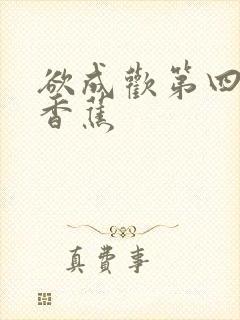 欲成歡第四
香蕉
真費事